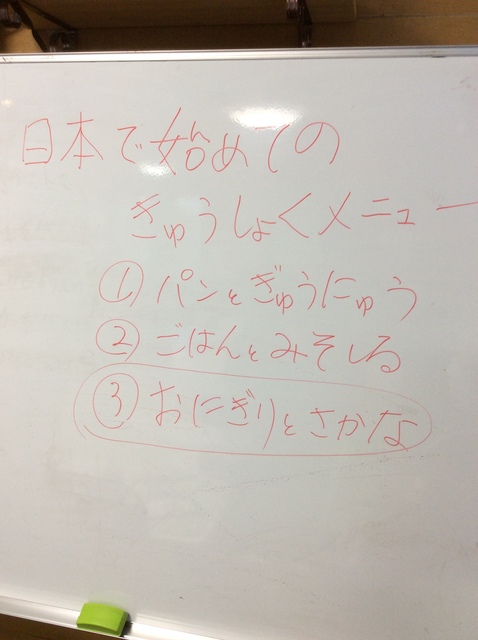 日本で始めての
きゅうしょくメニュー
① パンとぎゅうにゅう
② ごはんとみそしる
③ おにぎりとさかな